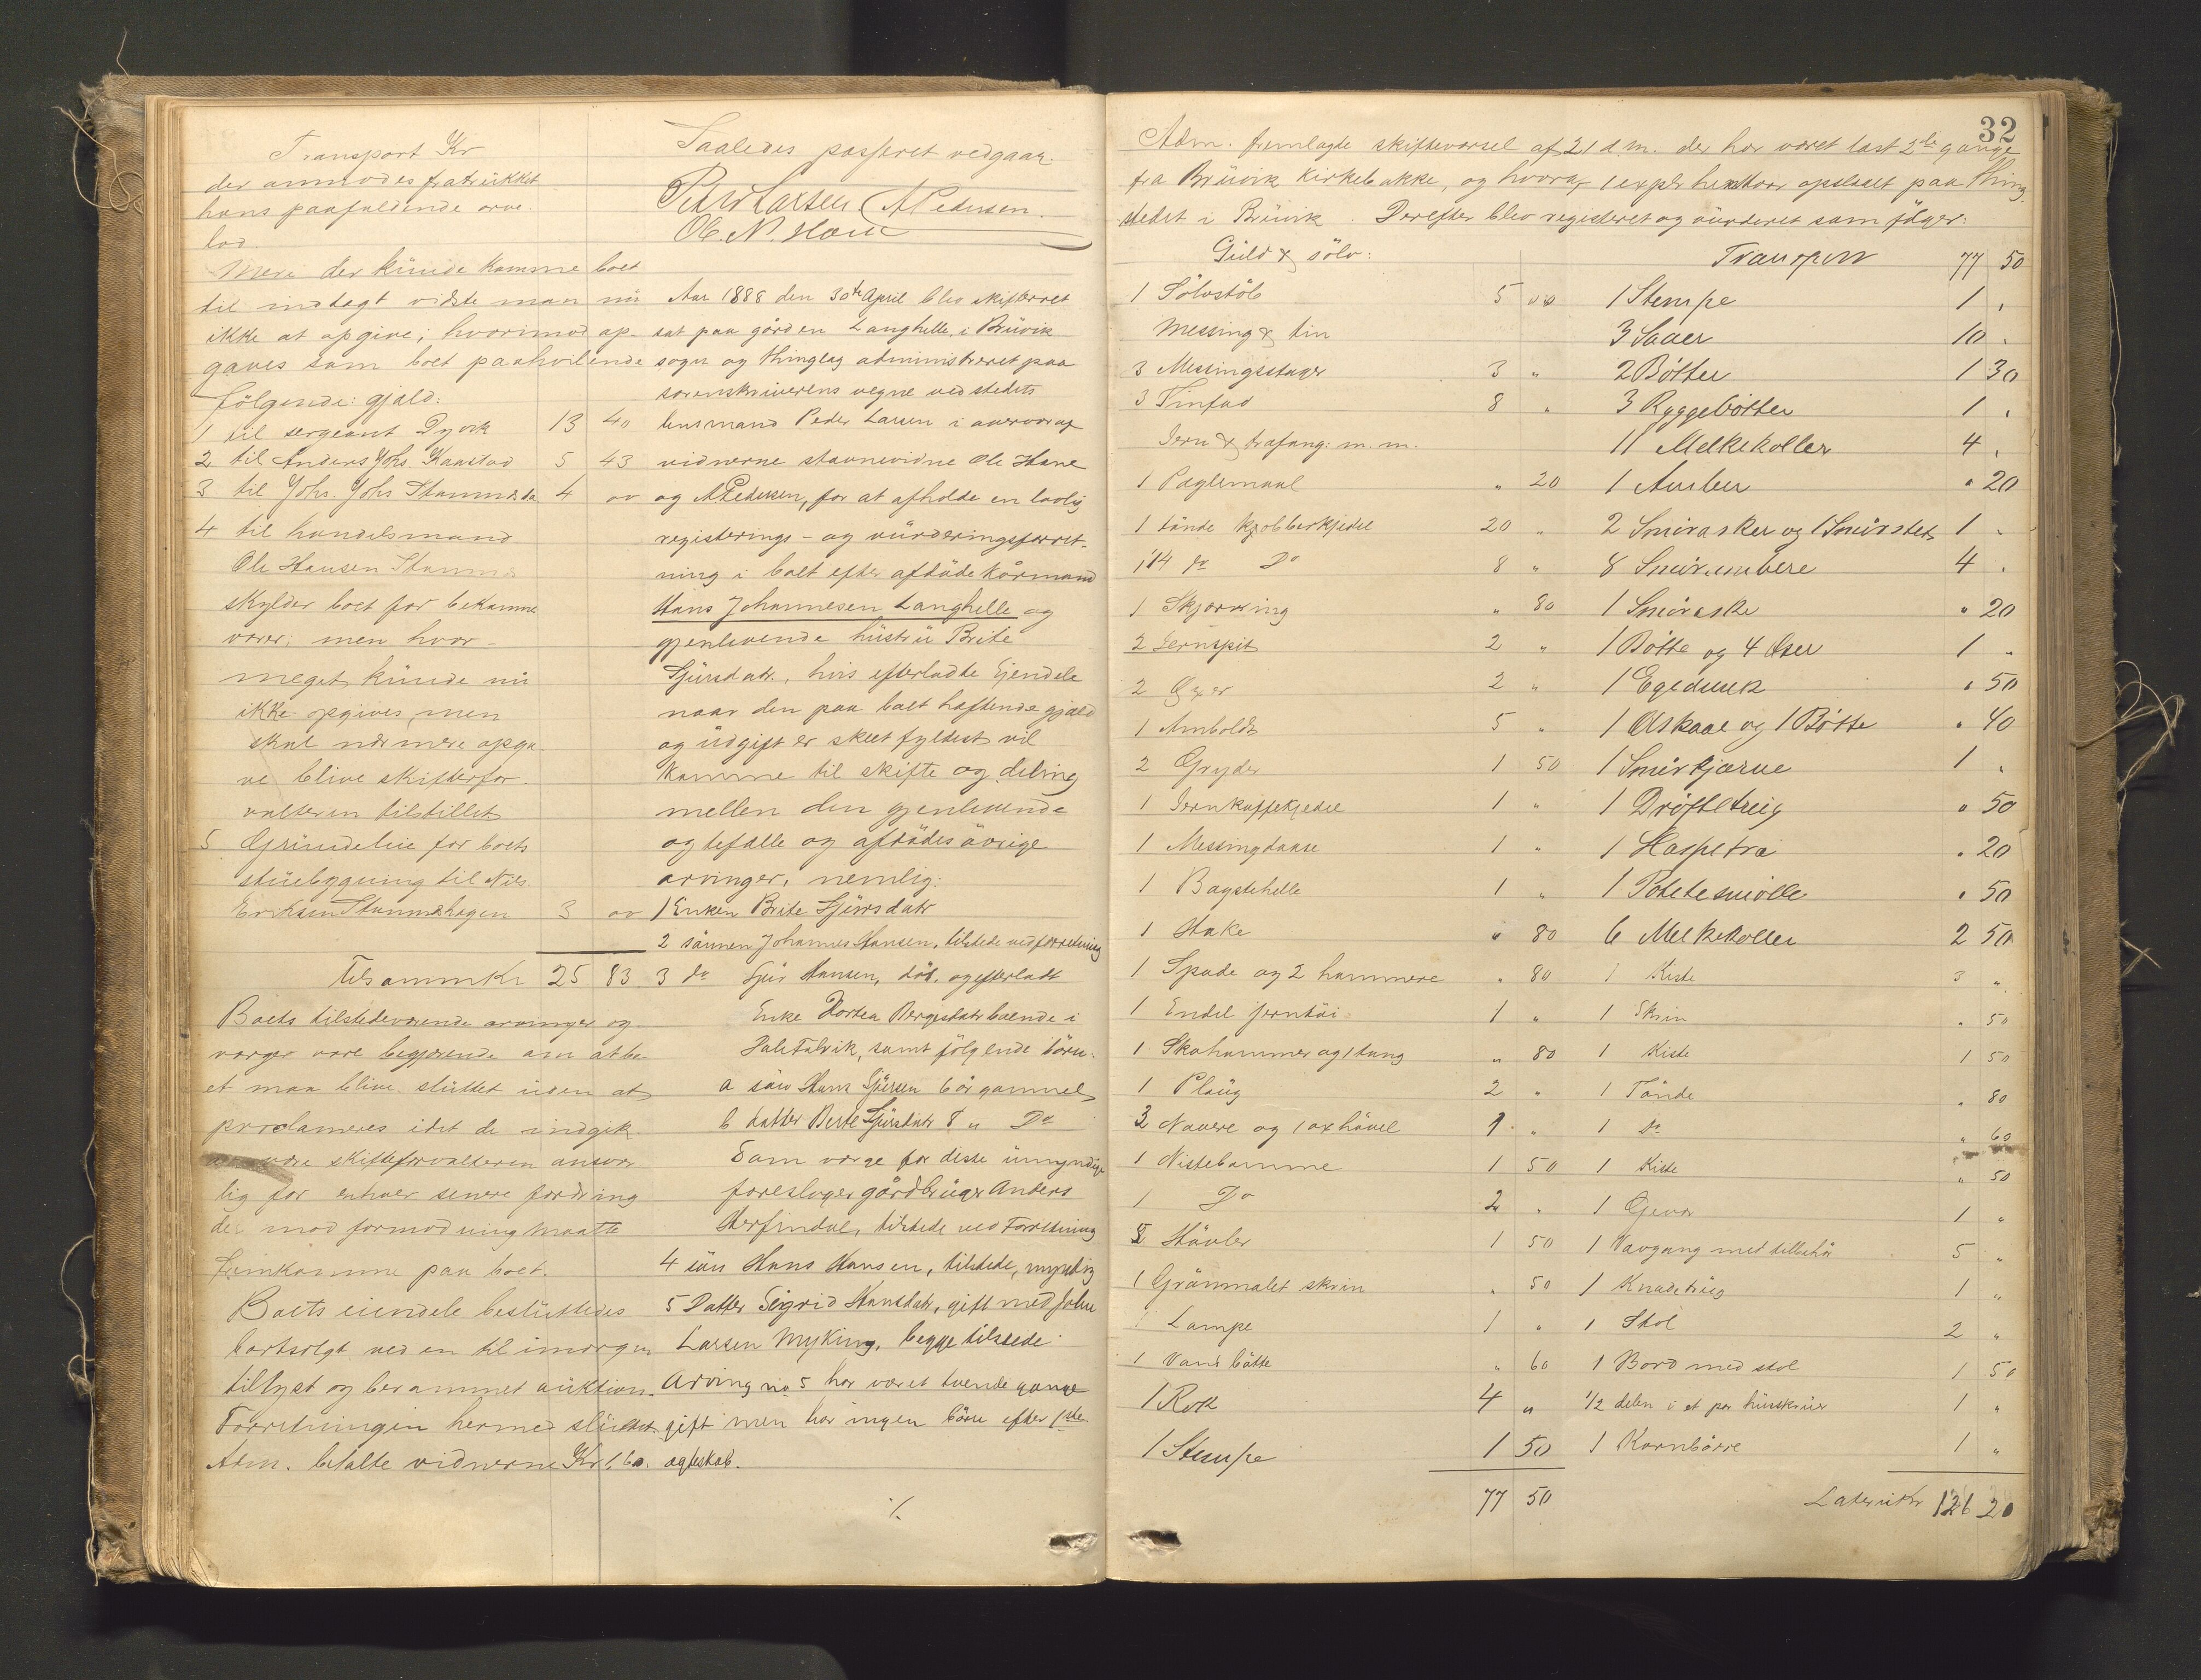 Transport Kr
der anmodes fratrükket
hans paafaldende arve-
lod.
Mere der künde komme boet
til indtægt vidste man nü
ikke at opgive; hvorimod op-
gaves som boet paahvilende
følgende gjæld:
1 til sergeant Dyvik 13 40
2 til Anders Johs. Kaastad 5 43
3 til Johs. Johs Stamnes 4 00
4 til handelsmand
Ole Hansen Stamnes
skylder boet for bekomne
varer; men hvor-
meget künde nü
ikke opgives, men
skal nærmere opga-
ve blive skifterfor-
valteren tilstillet
5 Gründleie for boets
stüebygning til Nils
Eriksen Stamneshagen 3 00
Tilsammen Kr 25 83
Boets tilstedeværende arvinger og
værger vare begjærende om at bo-
et maa blive slüttet üden at
proclameres idet de indgik
være skifteforvalteren ansvar
lig for enhver senere fordring
der mod formodning maatte
fremkomme paa boet.
Boets eiendele beslüttedes
bortsolgt ved en til imorgen
tillyst og berammet aüktion.
Forretningen hermed slüttet.
Adm. betalte vidnerne Kr 1.60.
Saaledes passeret vedgaar.
Peder Larsen A Pedersen.
Ole N. Hane
Aar 1888 den 30te April blev skifterret
sat paa gården Langhelle i Brüvik
sogn og thinglag administreret paa
sorenskriverens vegne ved stedets
lensmand Peder Larsen i overvær af
vidnerne stavnevidne Ole Hane
og A Pedersen, for at afholde en lovlig
registerings- og vürderingsforret-
ning i boet efter afdøde kårmand
Hans Johannesen Langhelle og
gjenlevende hüstrü Brite
Sjürsdatr., hvis efterladte Ejendele
naar den paa boet haftende gjæld
og üdgift er skeet fyldest vil
komme til skifte og deling
mellem den gjenlevende
ægtefælle og afdødes øvrige
arvinger, nemlig:
1 Enken Brite Sjürsdatr
2 sønnen Johannes Hansen, tilstede ved forretning
3 do Sjür Hansen, død, og efterladt
Enke Dortea Bergesdatr boende i
Dale Fabrik, samt følgende børn:
a søn Hans Sjürsen 6 år gammel
b datter Berte Sjürsdatr 8 " Do
Som værge for disse ümyndige
foreslages gårdbrüger Anders
Herfindal, tilstede ved Forretning
4 søn Hans Hansen, tilstede, myndig
5 Datter Sigrid Hansdatr, gift med John
Larsen Myking, begge tilstede
Arving no 5 har været tvende gange
gift men har ingen børn efter 1ste
ægteskab.
%
32
Adm. fremlagte skiftevarsel af 21 d.m. der har været læst 2de gange
fra Brüvik Kirkebakke, og hvoraf 1 expl. har været opslaaet paa thing-
stedet i Brüvik. Derefter blev registeret og vürderet som følger:
Güld & sølv:
1 Sølvstøb 5 00
Messing & tin
3 Messingstager 3 "
3 Tinfad 8 "
Jern & træfang: m.m.
1 Pæglemaal " 20
1 tønde kobberkjedel 20 "
1 1/4 do Do 8 "
1 Skjæring " 80
2 Jernspit 2 "
2 Øxer 2 "
1 Ambolds 5 "
2 Gryder 1 50
1 Jernkaffekjedel 1 "
1 Messingdaase 1 "
1 Bagstehelle 1 "
1 Hake " 80
1 Spade og 2 hammere " 80
1 Endel jerntøi 1 "
1 Skohammer og 1 tang " 80
1 Plaüg 2 "
3 Navere og 1 oxhøvel 1 "
1 Nistebomme 1 50
1 Do 2 "
3 Høvler 1 50
1 Grønmalet skrin " 50
1 Lampe 1 "
1 Vandbøtte " 60
1 Rok 4 "
1 Stempe 1 50
77 50
Transport 77 50
1 Stempe 1 "
3 Saaer 10 "
2 Bøtter 1 30
3 Ryggebøtter 1 "
11 Melkekoller 4 "
1 Amber " 20
2 Smørasker og 1 Smørsted 1 "
8 Smørambere 4 "
1 Smøraske " 20
1 Bøtte og 4 Øser 1 "
1 Egedunk " 50
1 Ølskaal og 1 Bøtte " 40
1 Smørkjærne 1 "
1 Drøfteltrüg " 50
1 Haspetræ " 20
1 Potetesmølle " 50
6 Melkekoller 2 50
1 Kiste 3 "
1 Skrin " 50
1 Kiste 1 50
1 Tønde " 80
1 Do " 60
1 Kiste " 50
1 Gevær 1 "
1 Vævgang med tilbehør 5 "
1 Knadetrüg 1 "
1 Stol 2 "
1 Bord med stol 1 50
1/2 delen i et par hüsskrüer 1 "
1 Kornbørre 1 "
Lateris Kr 126 20